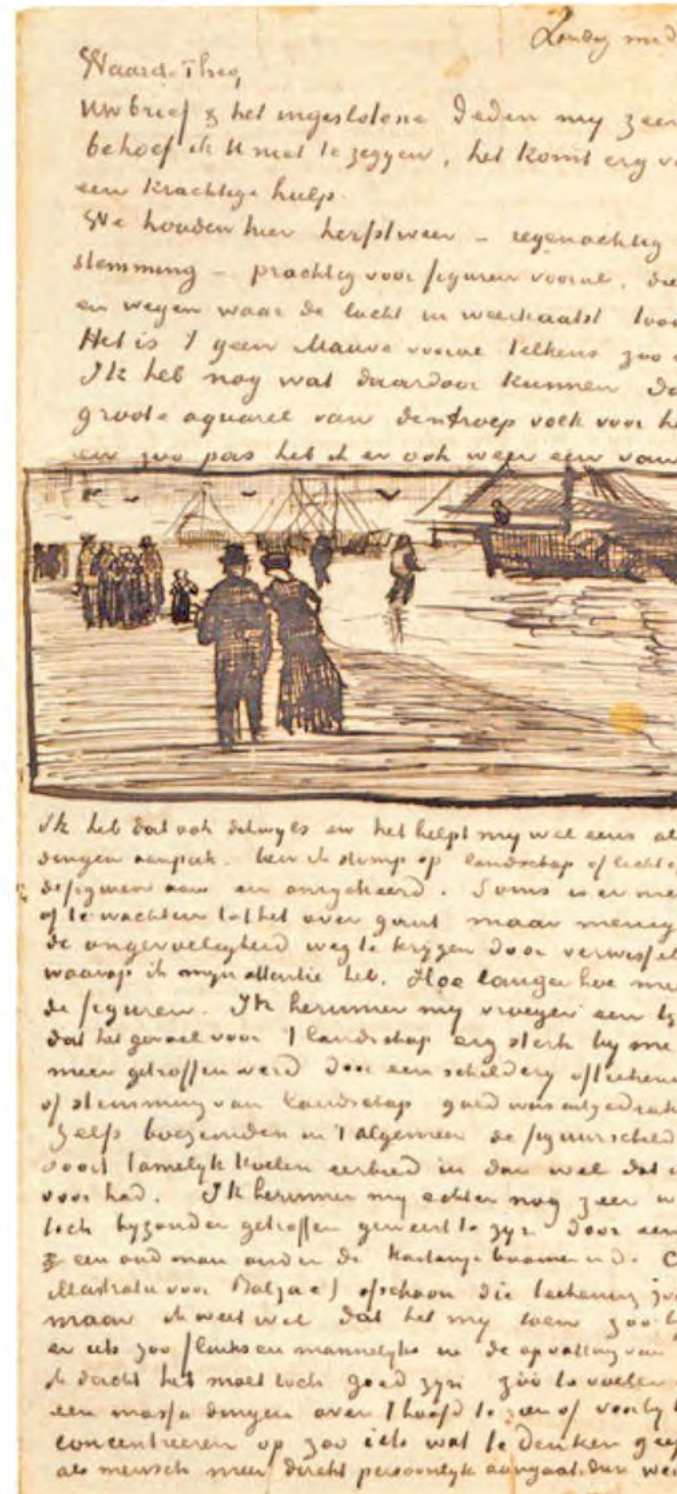 Zondag mid
Waarde Theo,
Uw brief & het ingeslotene deden my zeer
behoef ik U niet te zeggen, het komt erg v
een krachtige hulp.
We houden hier herfstweer – regenachtig
stemming – prachtig voor figuren vooral, die
en wegen waar de lucht in weerkaatst too
Het is 't geen Mauve vooral telkens zoo
Ik heb nog wat daardoor kunnen do
groote aquarel van den troep volk voor h
en zoo pas heb ik er ook weer een van
Ik heb dat ook dikwyls en het helpt my wel eens al
dingen aanpak. Ben ik stomp op landschap of licht e
de figuren aan en omgekeerd. Soms is er nie
of te wachten tot het over gaat maar menig
de ongevoeligheid weg te krygen door verwissel
waarop ik myn attentie heb. Hoe langer hoe me
de figuren. Ik herinner my vroeger een ty
dat het gevoel voor 't landschap erg sterk by me
meer getroffen werd door een schildery of teekeni
of stemming van landschap goed was uitgedruk
Zelfs boezemden in 't algemeen de figuurschild
soort tamelyk koelen eerbied in dan wel dat i
voor had. Ik herinner my echter nog zeer w
toch byzonder getroffen geweest te zyn door een
een oud man onder de kastanje boomen i/d. C
illustratie voor Balzac) ofschoon die teekening zo
maar ik weet wel dat het my toen zoo t
er iets zoo flinks en mannelyks in de opvatting van
ik dacht het moet toch goed zyn zóó te voelen
een massa dingen over 't hoofd te zien of voorby t
concentreeren op zoo iets wat te denken gee
als mensch meer direkt persoonlyk aangaat dan wei